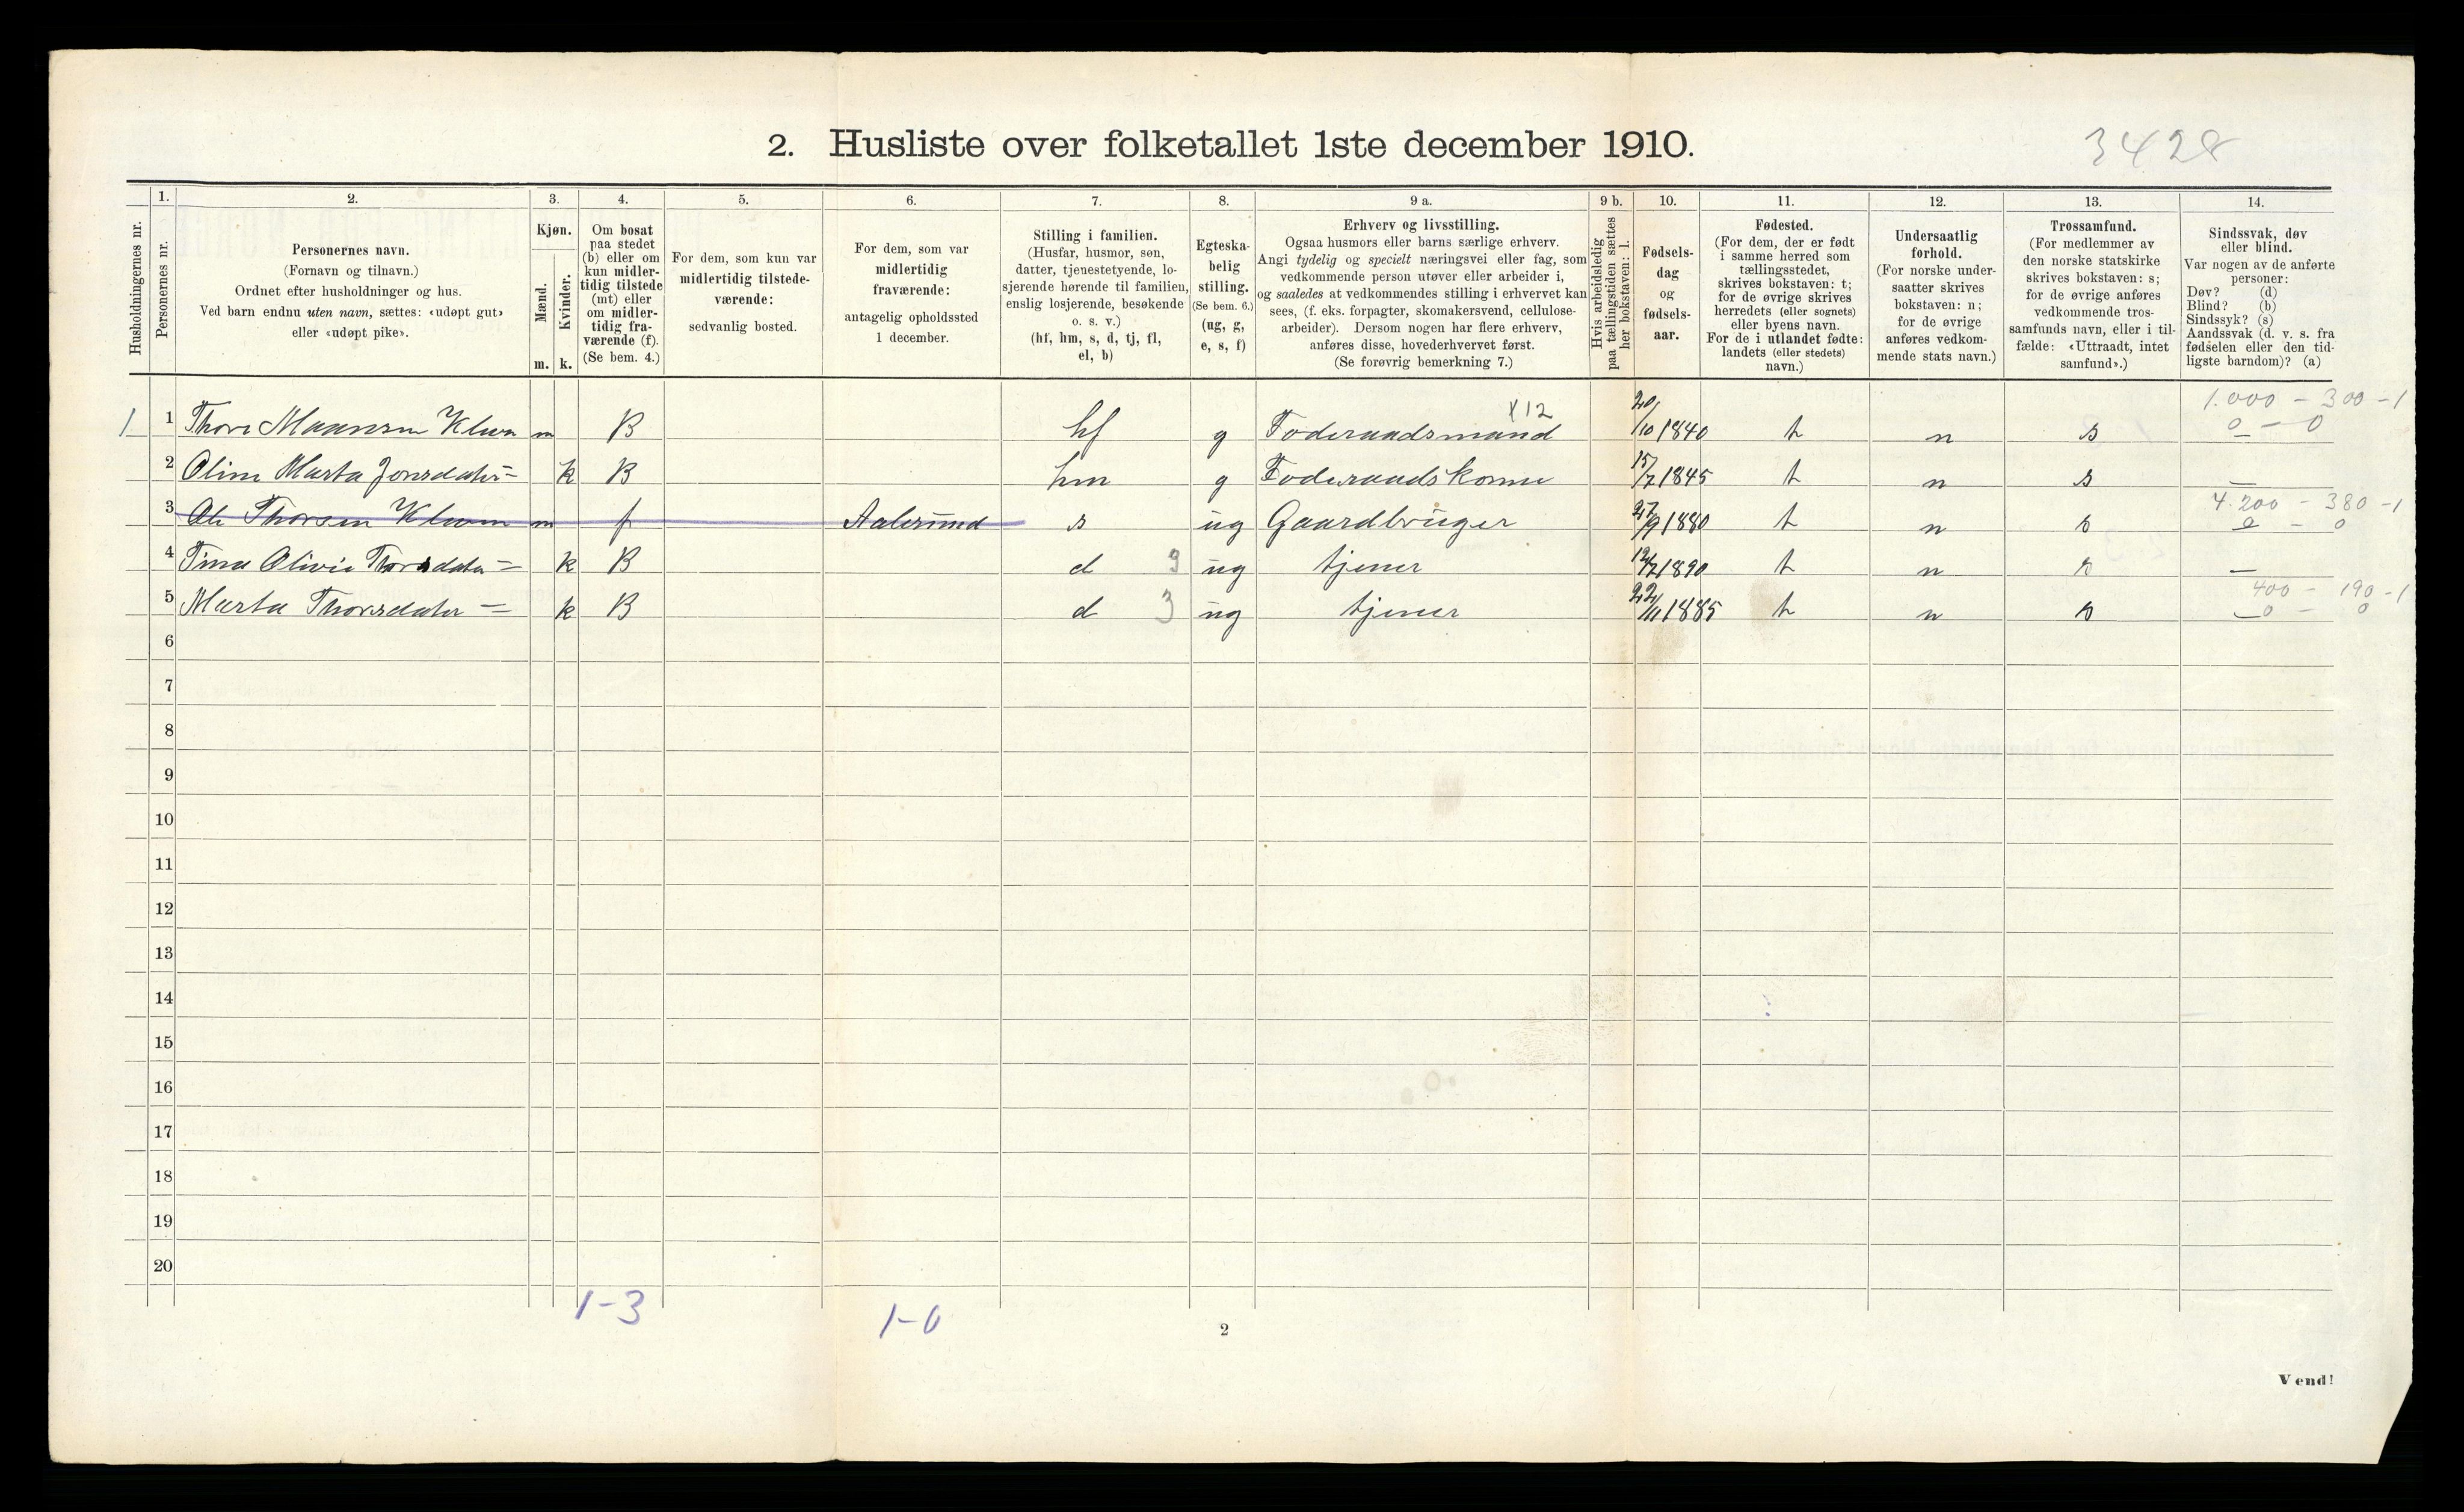 2. Husliste over folketallet 1ste december 1910.
3428
Husholdningernes nr.
1.
Personernes nr.
2.
Personernes navn.
(Fornavn og tilnavn.)
Ordnet efter husholdninger og hus.
Ved barn endnu uten navn, sættes: «udøpt gut»
eller «udøpt pike».
3.
Kjøn.
Mænd.
Kvinder.
m. k.
4.
Om bosat
paa stedet
(b) eller om
kun midler-
tidig tilstede
(mt) eller
om midler-
tidig fra-
værende (f).
(Se bem. 4.)
5.
For dem, som kun var
midlertidig tilstede-
værende:
sedvanlig bosted.
6.
For dem, som var
midlertidig
fraværende:
antagelig opholdssted
1 december.
7.
Stilling i familien.
(Husfar, husmor, søn,
datter, tjenestetyende, lo-
sjerende hørende til familien,
enslig losjerende, besøkende
o. s. v.)
(hf, hm, s, d, tj, fl,
el, b)
8.
Egteska-
belig
stilling.
(Se bem. 6.)
(ug, g,
e, s, f)
9 a.
Erhverv og livsstilling.
Ogsaa husmors eller barns særlige erhverv.
Angi tydelig og specielt næringsvei eller fag, som
vedkommende person utøver eller arbeider i,
og saaledes at vedkommendes stilling i erhvervet kan
sees, (f. eks. forpagter, skomakersvend, cellulose-
arbeider). Dersom nogen har flere erhverv,
anføres disse, hovederhvervet først.
(Se forøvrig bemerkning 7.)
9 b.
Hvis arbeidsledig
paa tællingstiden sættes
her bokstaven: l.
10.
Fødsels-
dag
og
fødsels-
aar.
11.
Fødested.
(For dem, der er født
i samme herred som
tællingsstedet,
skrives bokstaven: t;
for de øvrige skrives
herredets (eller sognets)
eller byens navn.
For de i utlandet fødte:
landets (eller stedets)
navn.)
12.
Undersaatlig
forhold.
(For norske under-
saatter skrives
bokstaven: n;
for de øvrige
anføres vedkom-
mende stats navn.)
13.
Trossamfund.
(For medlemmer av
den norske statskirke
skrives bokstaven: s;
for de øvrige anføres
vedkommende tros-
samfunds navn, eller i til-
fælde: «Uttraadt, intet
samfund».)
14.
Sindssvak, døv
eller blind.
Var nogen av de anførte
personer:
Døv? (d)
Blind? (b)
Sindssyk? (s)
Aandssvak (d. v. s. fra
fødselen eller den tid-
ligste barndom)? (a)
X12 1.000 - 300 - 1
1 1 m B hf g Føderaadsmand 20/10 1840 t n s 0 - 0
2 Oline Marta Jonsdater = k B hm g Føderaadskone 15/7 1845 t n s —
4.200 - 380 - 1
3 Ole Thorsen m f Aalesund s ug Gaardbruger 27/9 1880 t n s 0 - 0
4 Tina Olivie Thorsdater = k B d 3 ug tjener 12/7 1890 t n s —
400 - 190 - 1
5 Marta Thorsdater = k B d 3 ug tjener 22/11 1885 t n s 0 - 0
6
7
8
9
10
11
12
13
14
15
16
17
18
19
20
1-3
1-0
2
Vend!